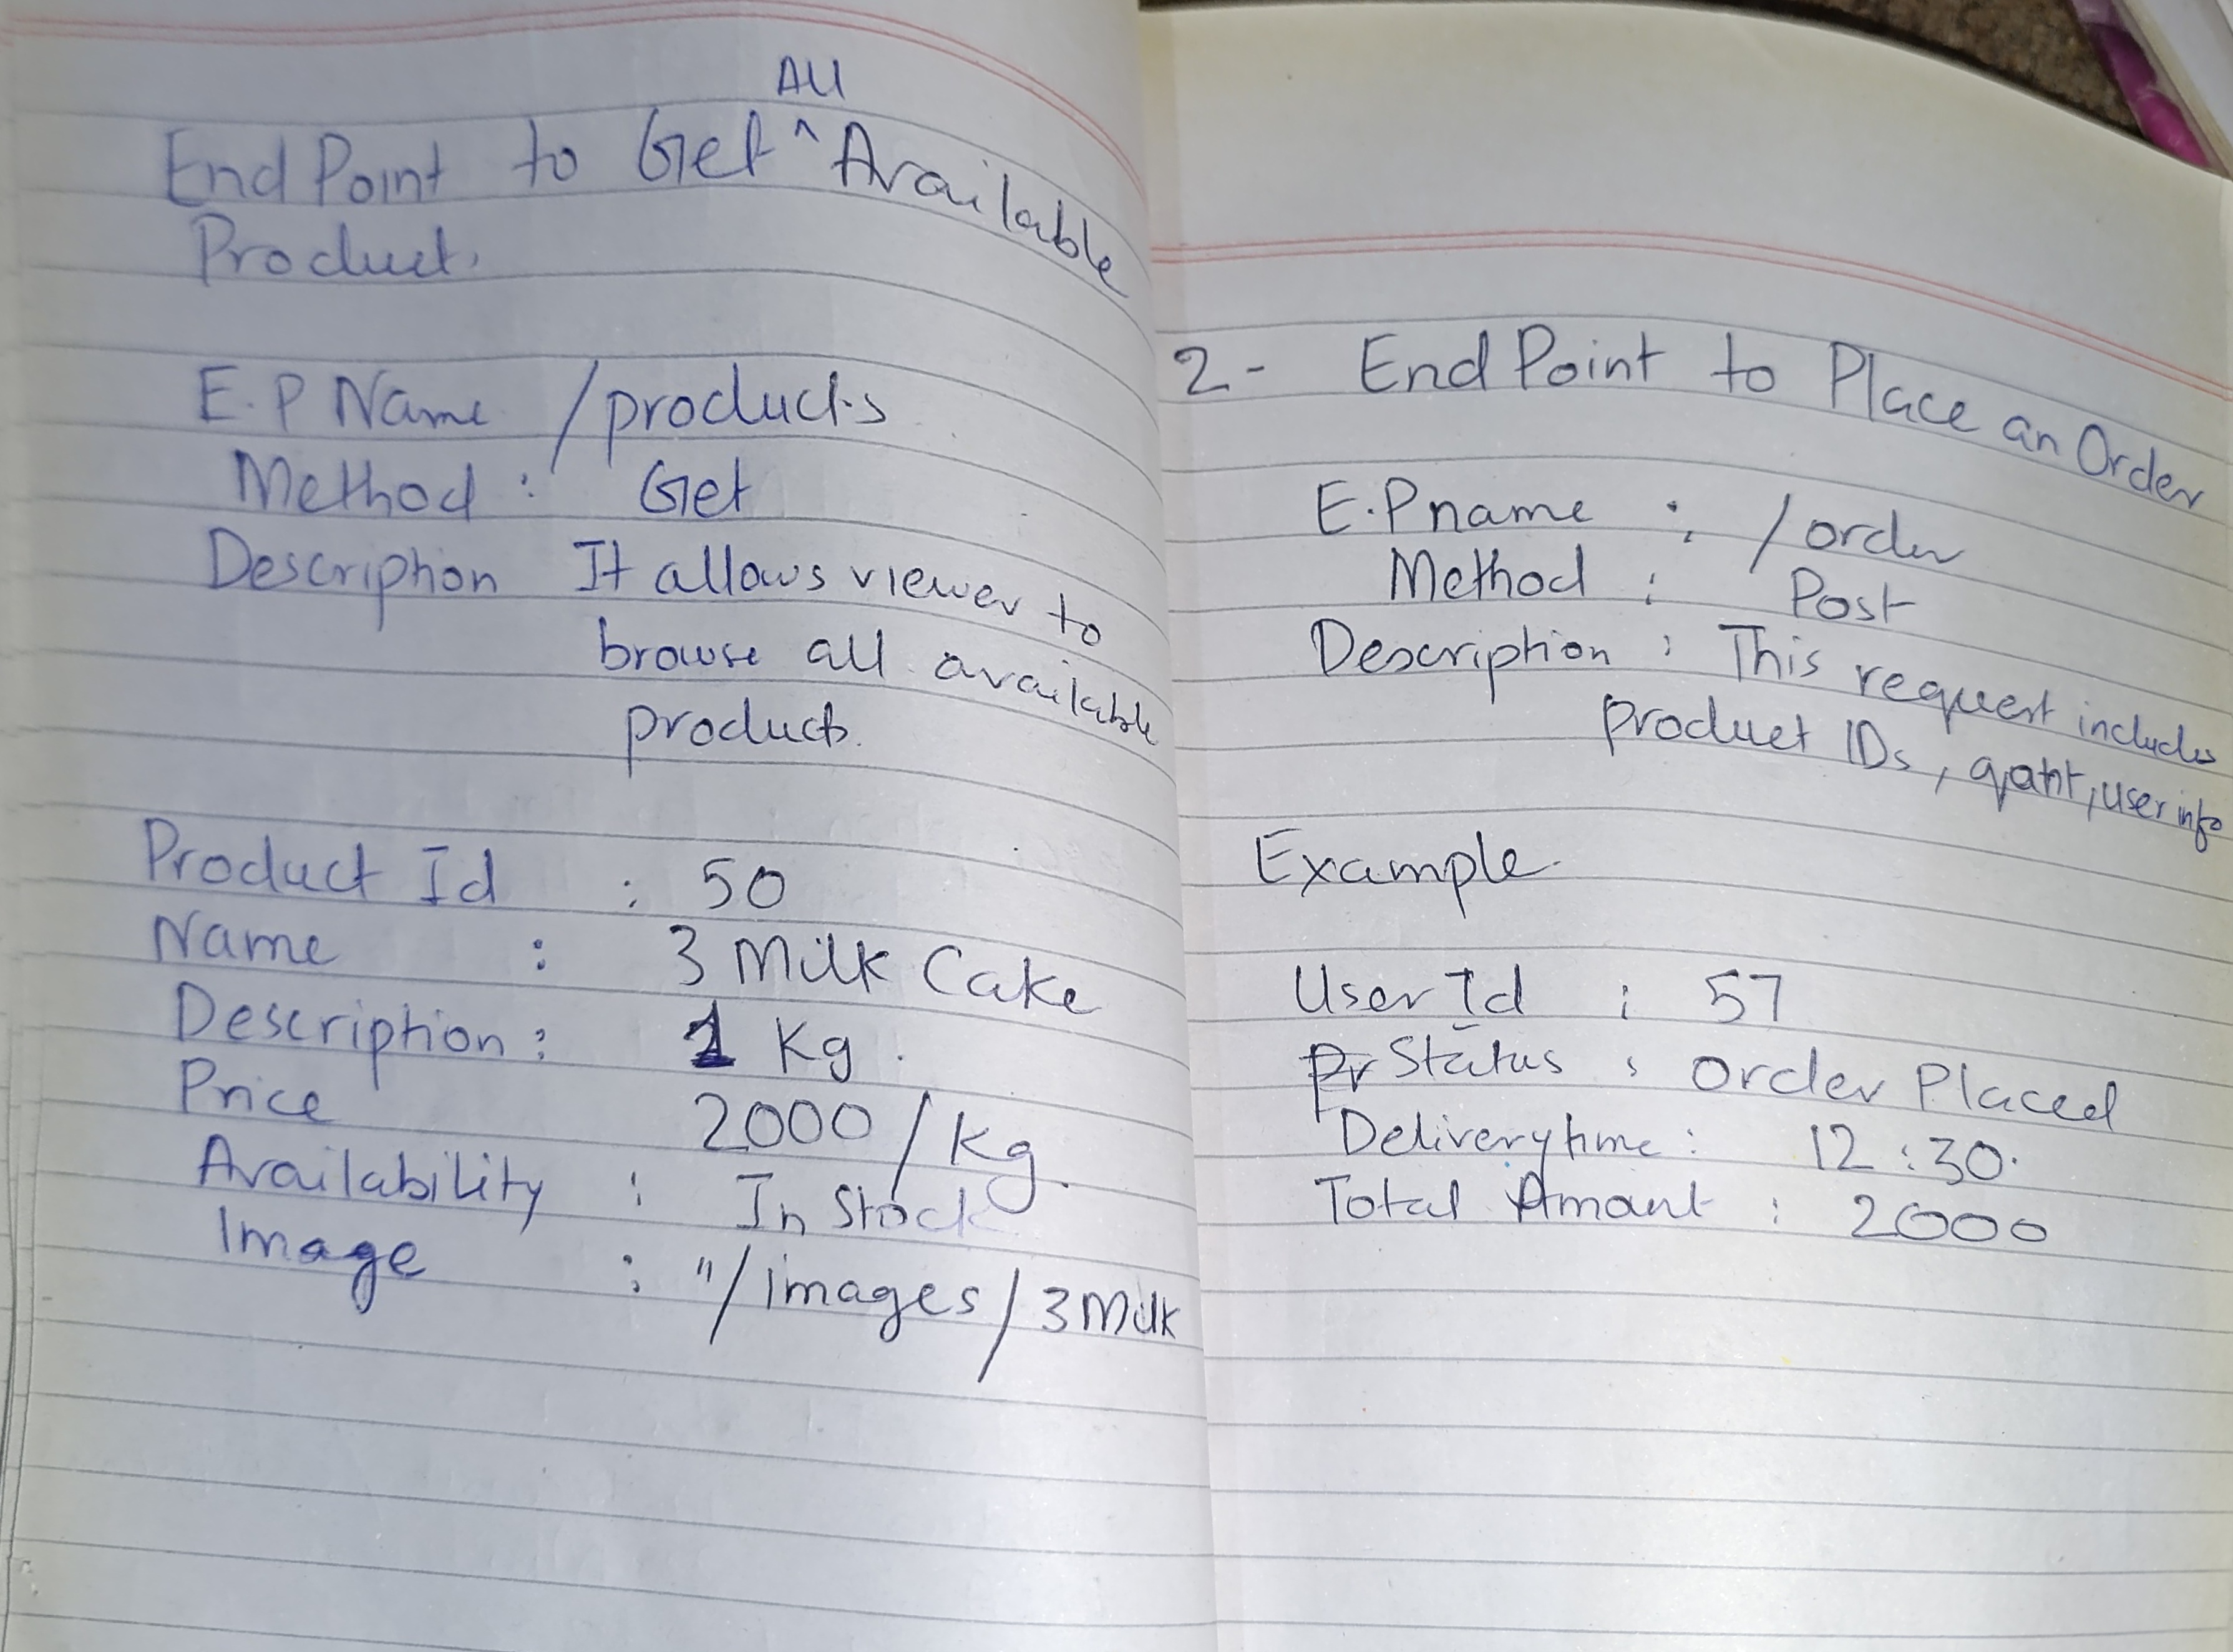 All
End Point to Get ^ Available
Product.
E.P Name /products
Method : Get
Description It allows viewer to
browse all available
products.
Product Id : 50
Name : 3 Milk Cake
Description : 1 Kg.
Price 2000/Kg.
Availability : In Stock
Image : "/images/3Milk
2- End Point to Place an Order
E.P name : /order
Method : Post
Description : This request includes
product IDs, qatnt, user info
Example.
User Id : 57
Pr Status : Order Placed
Delivery time : 12:30.
Total Amount : 2000